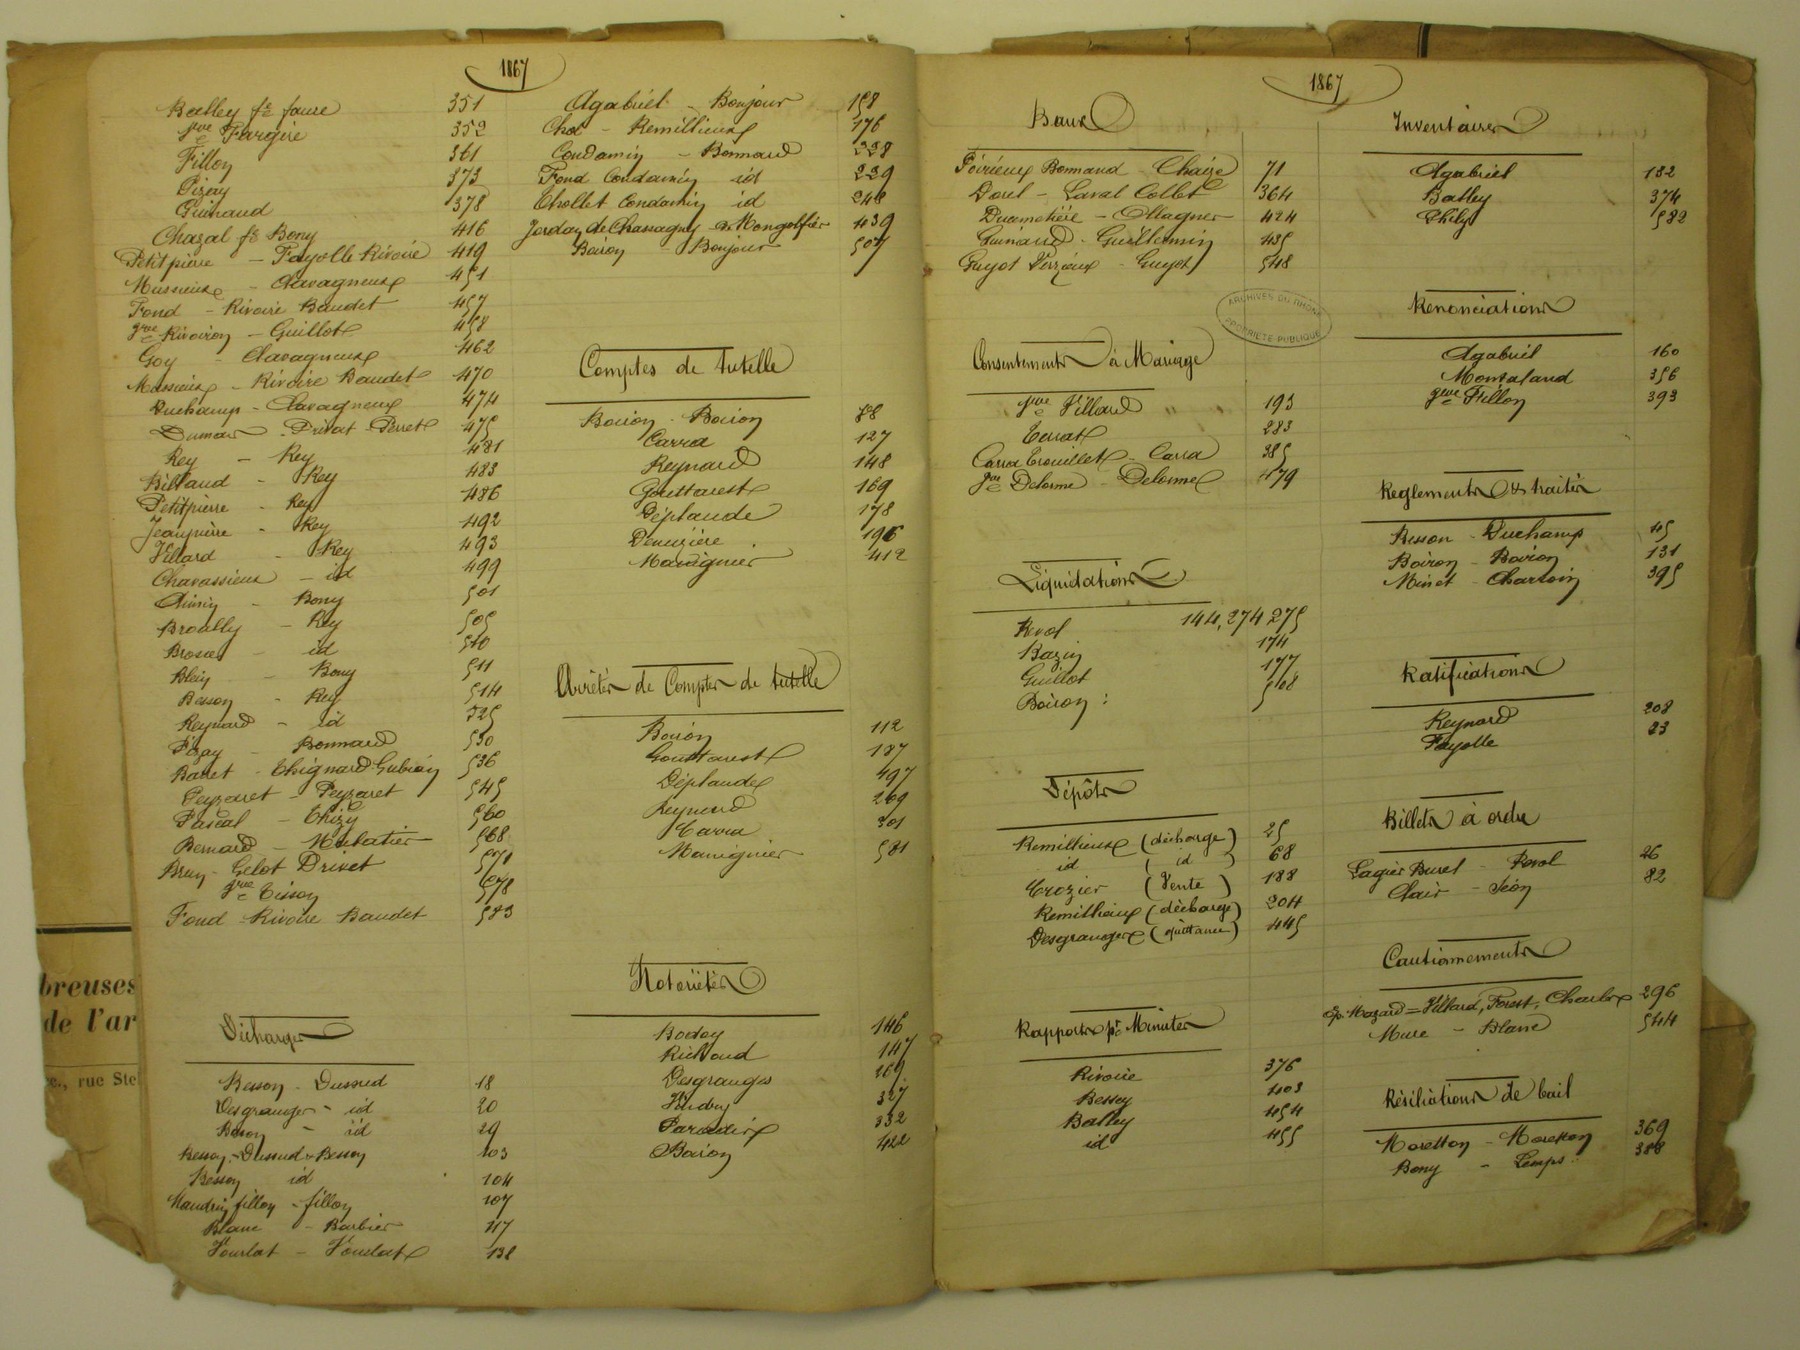 1867
Balley fe faure 351
gve Fargère 352
Fillon 361
Pizay 373
Guinand 378
Chazal fe Bony 416
Petitpierre - Fayolle Rivoire 419
Mussieux - Chavagneux 451
Fond - Rivoire Baudet 457
gve Rivoiron - Guillot 458
Goy - Chavagneux 462
Massieux - Rivoire Baudet 470
Duchamp - Chavagneux 474
Dumas - Privat - Perret 475
Rey - Rey 481
Billaud - Rey 483
Petitpierre - Rey 486
Jeanpierre - Rey 492
Villard - Rey 493
Chavassieux - id 499
- Bony 501
Brouilly - Rey 505
Brosse - id 510
Blein - Bony 511
Besson - Rey 514
Reynard - id 525
Pizay - Bonnard 530
Barret - Thignard Gubian 536
Peyzaret - Peyzaret 545
Pascal - Thizy 560
Bernard - 568
Brun - Gelot Drivet 571
gve Tisson 578
Fond - Rivoire Baudet 583
Décharges
Besson - Dussud 18
Desgranges - id 20
Besson - id 29
Besson - Dussud - Besson 103
Besson id 104
Naudin fillon - fillon 107
Blanc - Barbier 117
Fourlat - Fourlat 138
Agabriel - Bonjour 158
Chol - Remillieux 176
Condamin - Bonnard 228
Fond Condamin id 229
Chollet Condamin id 248
Jordan de Chassagny - de Mongolfier 439
Boiron - Bonjour 507
Comptes de tutelle
Boiron - Boiron 78
Carra 127
Reynard 148
Gouttarest 169
Déplaude 178
Denuzière 196
Mavignier 412
Arrêtés de Comptes de tutelle
Boiron 112
Gouttarest 187
Déplaude 497
Reynard 269
Carra 301
Mavignier 581
Notoriétés
Bodoy 146
Richoud 147
Desgranges 269
327
Paradis 332
Boiron 422
1867
Baux
Poirieux Bonnand - Chaize 71
Dorel - Laval Collet 364
Ducmotière - Ollagner 424
Guinand - Guillermin 435
Guyot Verzieux - Guyot 548
ARCHIVES DU RHONE
PROPRIETE PUBLIQUE
Consentements à Mariage
gve Villard 193
Terrat 283
Carra Trouillet - Carra 385
gve Delorme - Delorme 479
Liquidations
Revol 144, 274 275
Bazin 174
Guillot 177
Boiron : 508
Dépôts
Remillieux (décharge) 25
id ( id ) 68
Crozier (Vente) 188
Remillieux (décharge) 204
Desgranges (quittance) 445
Rapports pr Minutes
Rivoire 376
Bessey 403
Balley 454
id 455
Inventaires
Agabriel 182
Balley 374
Thily 582
Renonciations
Agabriel 160
Montaland 356
gve Fillon 393
Reglements & traités
Besson - Duchamp 45
Boiron - Boiron 131
Minet - Charvin 395
Ratifications
Reynard 208
Fayolle 23
Billets à ordre
Lagier Buret - Revol 26
Clair - Séon 82
Cautionnements
Ep. Mazard = Villard, Forest, Charles 296
Mure - Blanc 544
Résiliations de bail
Moretton - Moretton 369
Bony - Lemps 388
breuses
de l'ar
c., rue Ste